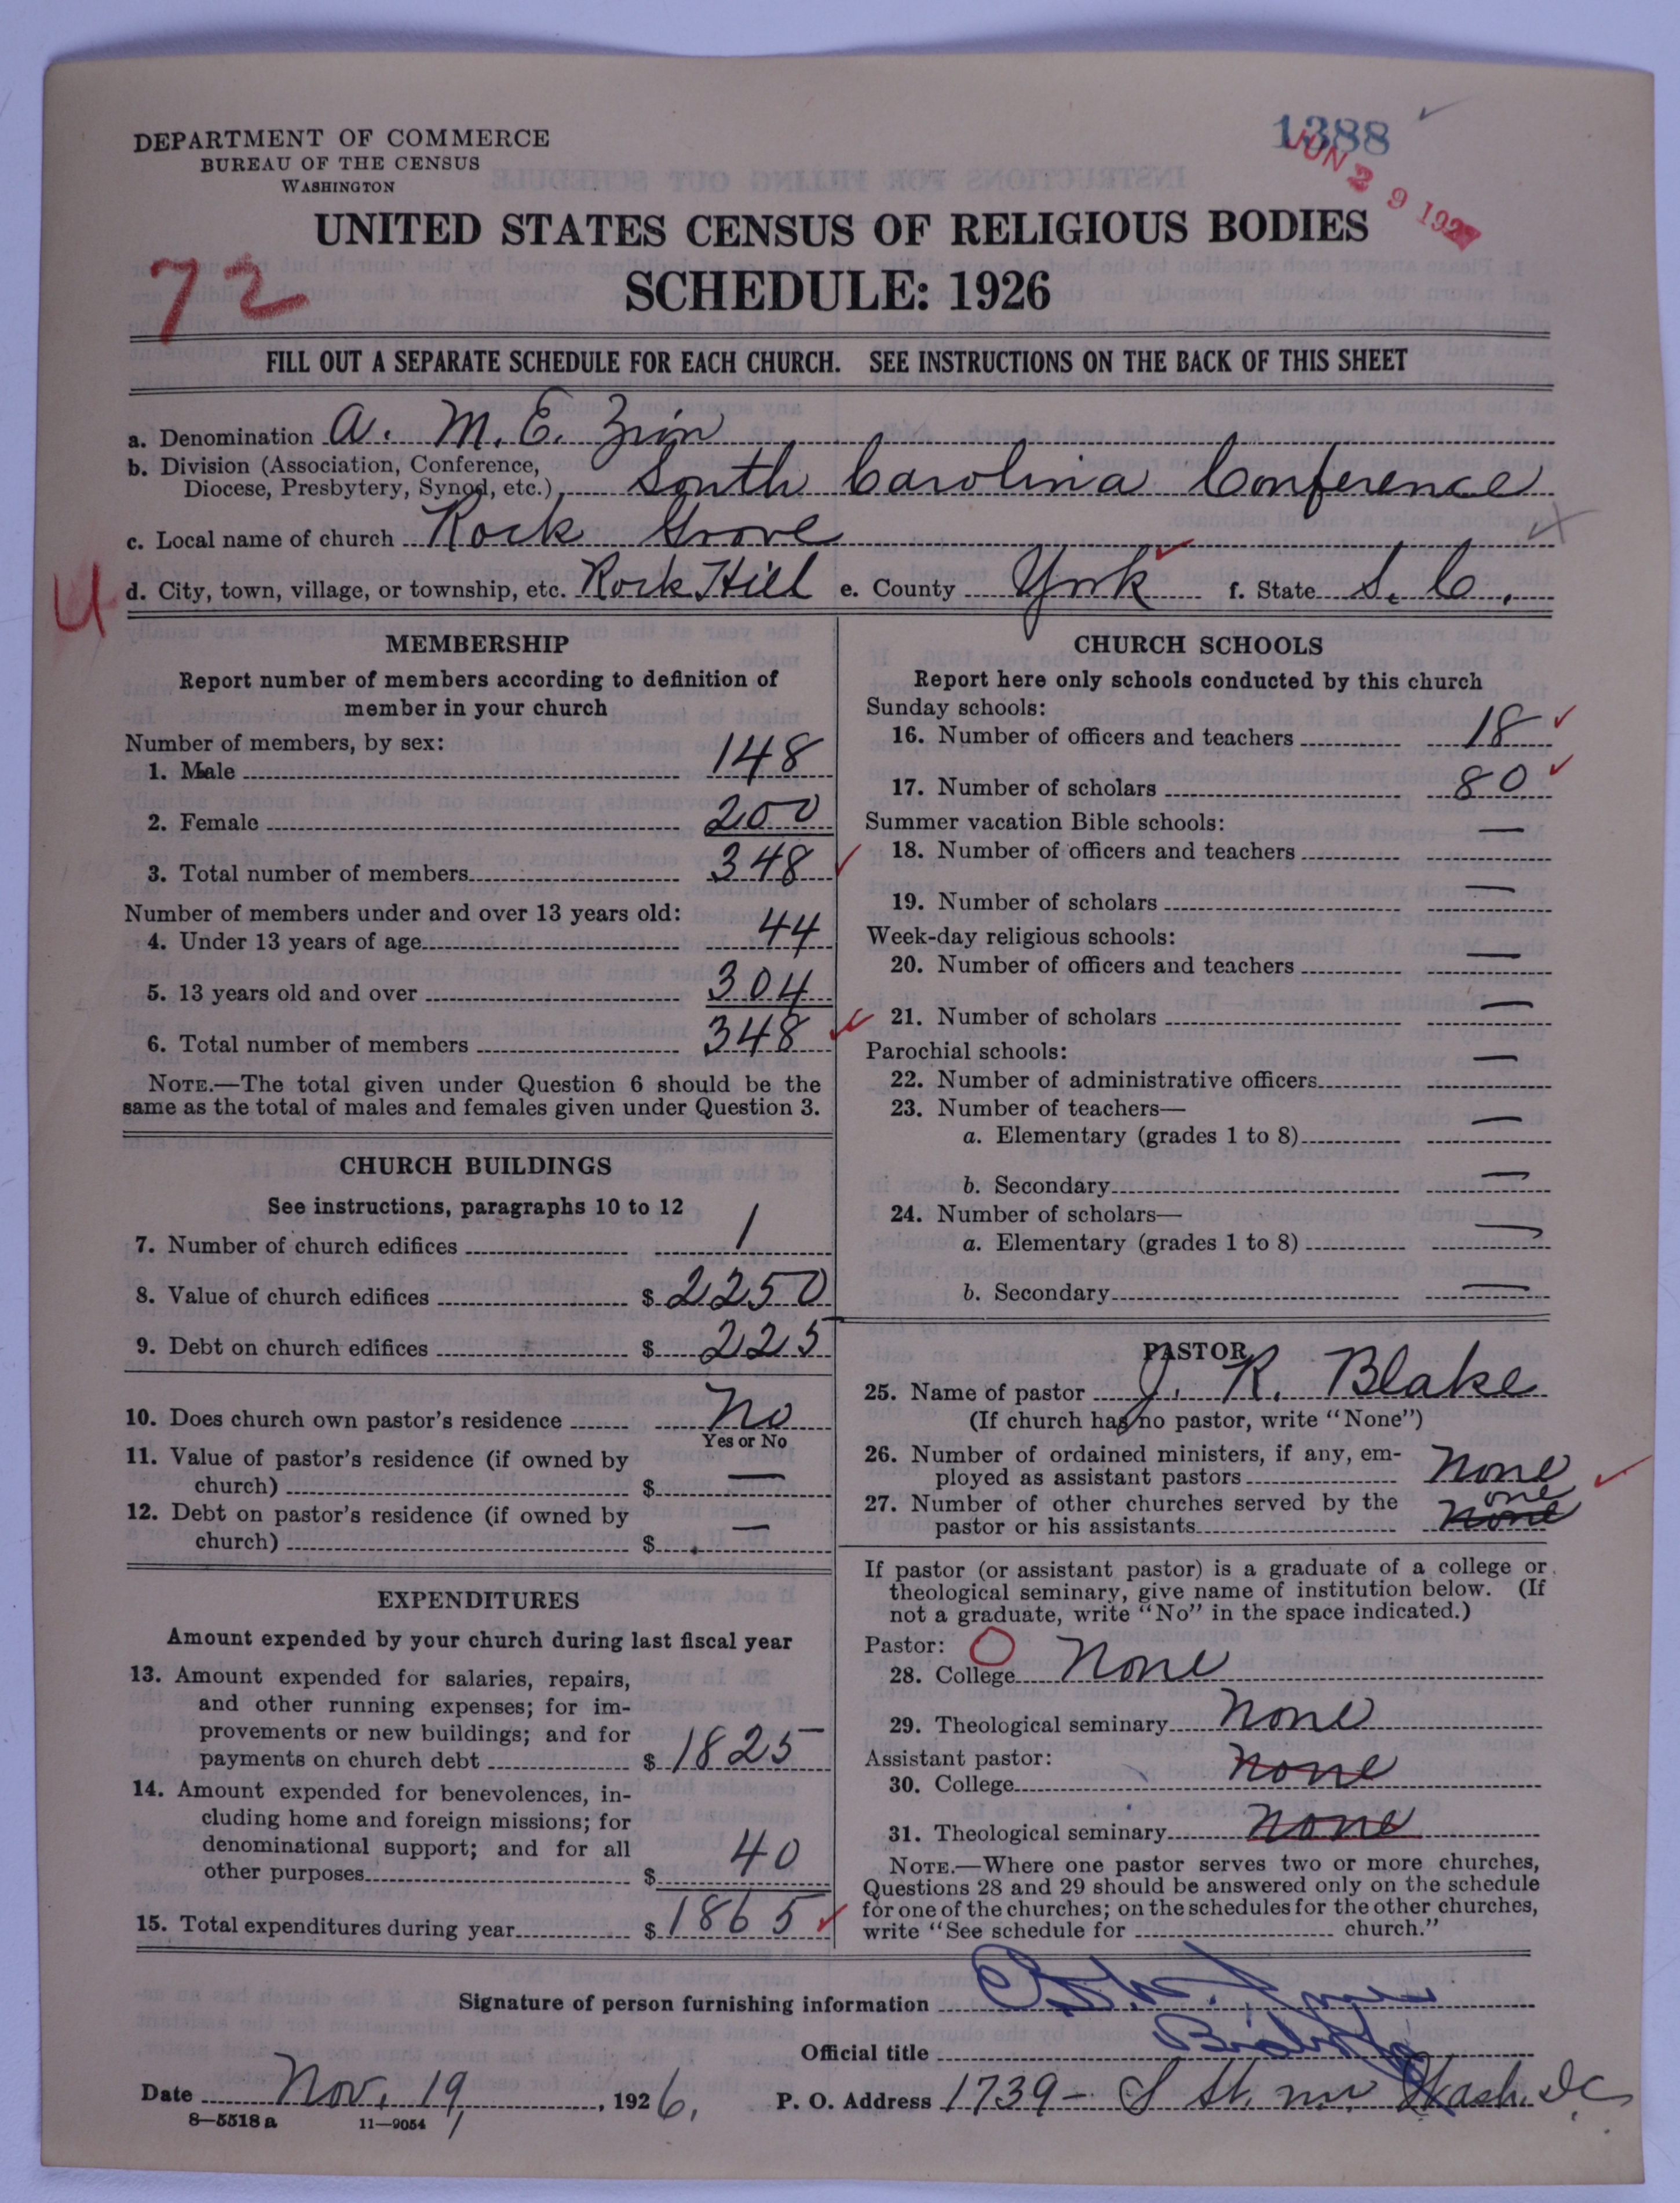 1388
JUN 29 192
DEPARTMENT OF COMMERCE
BUREAU OF THE CENSUS
WASHINGTON
UNITED STATES CENSUS OF RELIGIOUS BODIES
SCHEDULE: 1926
72
FILL OUT A SEPARATE SCHEDULE FOR EACH CHURCH. SEE INSTRUCTIONS ON THE BACK OF THIS SHEET
a. Denomination A. M. E. Zion
b. Division (Association, Conference,
Diocese, Presbytery, Synod, etc.) South Carolina Conference
c. Local name of church Rock Grove
U
d. City, town, village, or township, etc. Rock Hill e. County York f. State S. C.
MEMBERSHIP
Report number of members according to definition of
member in your church
Number of members, by sex:
1. Male 148
2. Female 200
3. Total number of members 348
Number of members under and over 13 years old:
4. Under 13 years of age 44
5. 13 years old and over 304
6. Total number of members 348
NOTE.—The total given under Question 6 should be the
same as the total of males and females given under Question 3.
CHURCH BUILDINGS
See instructions, paragraphs 10 to 12
7. Number of church edifices 1
8. Value of church edifices $ 2250
9. Debt on church edifices $ 225
10. Does church own pastor's residence No
Yes or No
11. Value of pastor's residence (if owned by
church) $ —
12. Debt on pastor's residence (if owned by
church) $ —
EXPENDITURES
Amount expended by your church during last fiscal year
13. Amount expended for salaries, repairs,
and other running expenses; for im-
provements or new buildings; and for
payments on church debt $ 1825
14. Amount expended for benevolences, in-
cluding home and foreign missions; for
denominational support; and for all
other purposes $ 40
15. Total expenditures during year $ 1865
CHURCH SCHOOLS
Report here only schools conducted by this church
Sunday schools:
16. Number of officers and teachers 18
17. Number of scholars 80
Summer vacation Bible schools:
18. Number of officers and teachers —
19. Number of scholars —
Week-day religious schools:
20. Number of officers and teachers —
21. Number of scholars —
Parochial schools:
22. Number of administrative officers —
23. Number of teachers—
a. Elementary (grades 1 to 8) —
b. Secondary —
24. Number of scholars—
a. Elementary (grades 1 to 8) —
b. Secondary —
PASTOR
25. Name of pastor J. R. Blake
(If church has no pastor, write "None")
26. Number of ordained ministers, if any, em-
ployed as assistant pastors None
27. Number of other churches served by the
one
pastor or his assistants None
If pastor (or assistant pastor) is a graduate of a college or
theological seminary, give name of institution below. (If
not a graduate, write "No" in the space indicated.)
Pastor: O
28. College None
29. Theological seminary None
Assistant pastor:
30. College None
31. Theological seminary None
NOTE.—Where one pastor serves two or more churches,
Questions 28 and 29 should be answered only on the schedule
for one of the churches; on the schedules for the other churches,
write "See schedule for church."
Signature of person furnishing information
Official title Bishop
Date Nov. 19, 1926. P. O. Address 1739 - S St. nw Wash. D.C.
8—5518a 11—9054